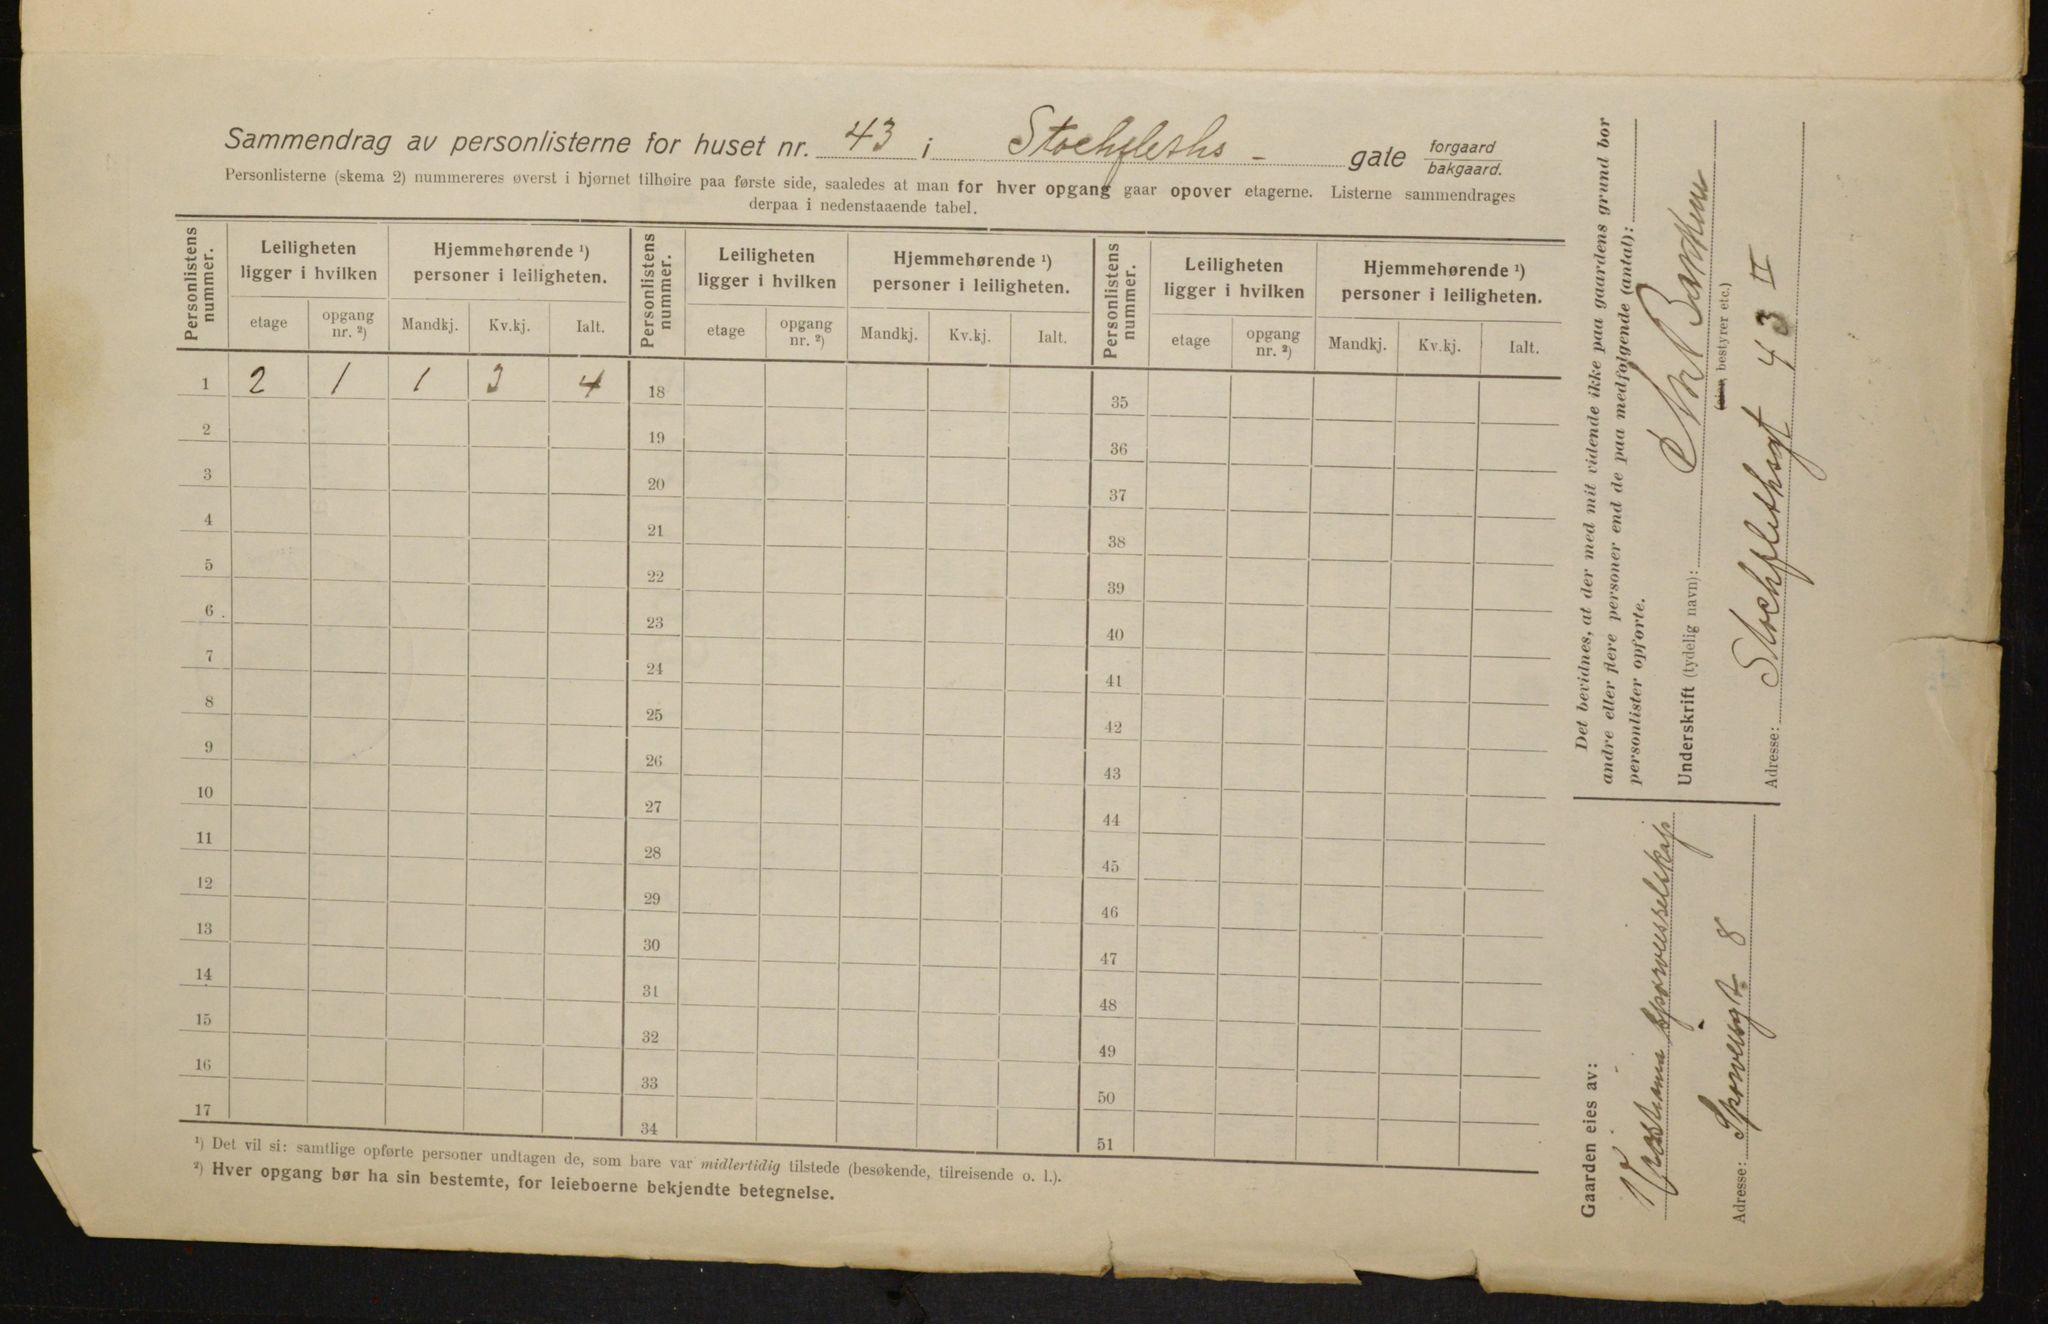 Sammendrag av personlisterne for huset nr. 43 i Stochfleths - gate forgaard
bakgaard.
Personlisterne (skema 2) nummereres øverst i hjørnet tilhøire paa første side, saaledes at man for hver opgang gaar opover etagerne. Listerne sammendrages
derpaa i nedenstaaende tabel.
Personlistens nummer.
Leiligheten ligger i hvilken
Hjemmehørende ¹) personer i leiligheten.
etage
opgang nr. ²)
Mandkj.
Kv.kj.
Ialt.
Personlistens nummer.
Leiligheten ligger i hvilken
Hjemmehørende ¹) personer i leiligheten.
etage
opgang nr. ²)
Mandkj.
Kv.kj.
Ialt.
Personlistens nummer.
Leiligheten ligger i hvilken
Hjemmehørende ¹) personer i leiligheten.
etage
opgang nr. ²)
Mandkj.
Kv.kj.
Ialt.
1 2 1 1 3 4 18 35
2 19 36
3 20 37
4 21 38
5 22 39
6 23 40
7 24 41
8 25 42
9 26 43
10 27 44
11 28 45
12 29 46
13 30 47
14 31 48
15 32 49
16 33 50
17 34 51
¹) Det vil si: samtlige opførte personer undtagen de, som bare var midlertidig tilstede (besøkende, tilreisende o. l.).
²) Hver opgang bør ha sin bestemte, for leieboerne bekjendte betegnelse.
Det bevidnes, at der med mit vidende ikke paa gaardens grund bor
andre eller flere personer end de paa medfølgende (antal):
personlister opførte.
Underskrift (tydelig navn):
(eier, bestyrer etc.)
Adresse: Stochflethsgt 43 II
Gaarden eies av:
Kristiania Sporveisselskap
Adresse: Sporveisgt. 8